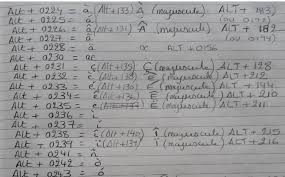 Alt + 0224 = à (Alt+133) À (majuscule) ALT + 183)
Alt + 0225 = á (ou 0192)
Alt + 0226 = â (Alt+131) Â (majuscule) ALT + 182
Alt + 0227 = ã (ou 0194)
Alt + 0228 = ä œ ALT + 0156
Alt + 0230 = æ
Alt + 0231 = ç (Alt+135) Ç (majuscule) ALT + 128
Alt + 0232 = è (Alt+138) È (majuscule) ALT + 212
Alt + 0233 = é (Alt+130) É (majuscule) ALT + 144
Alt + 0234 = ê (Alt+136) Ê (majuscule) ALT + 210
Alt + 0235 = ë (Alt+137) Ë (majuscule) ALT + 211
Alt + 0236 = ì
Alt + 0237 = í
Alt + 0238 = î (Alt+140) Î (majuscule) ALT + 215
Alt + 0239 = ï (Alt+139) Ï (majuscule) ALT + 216
Alt + 0241 = ñ
Alt + 0242 = ò
Alt + 0243 = ó